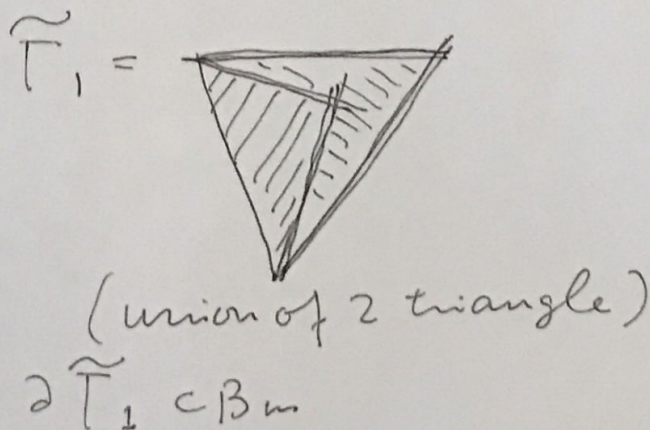 T̃₁ =
(union of 2 triangle)
∂T̃₁ ⊂ Bₘ